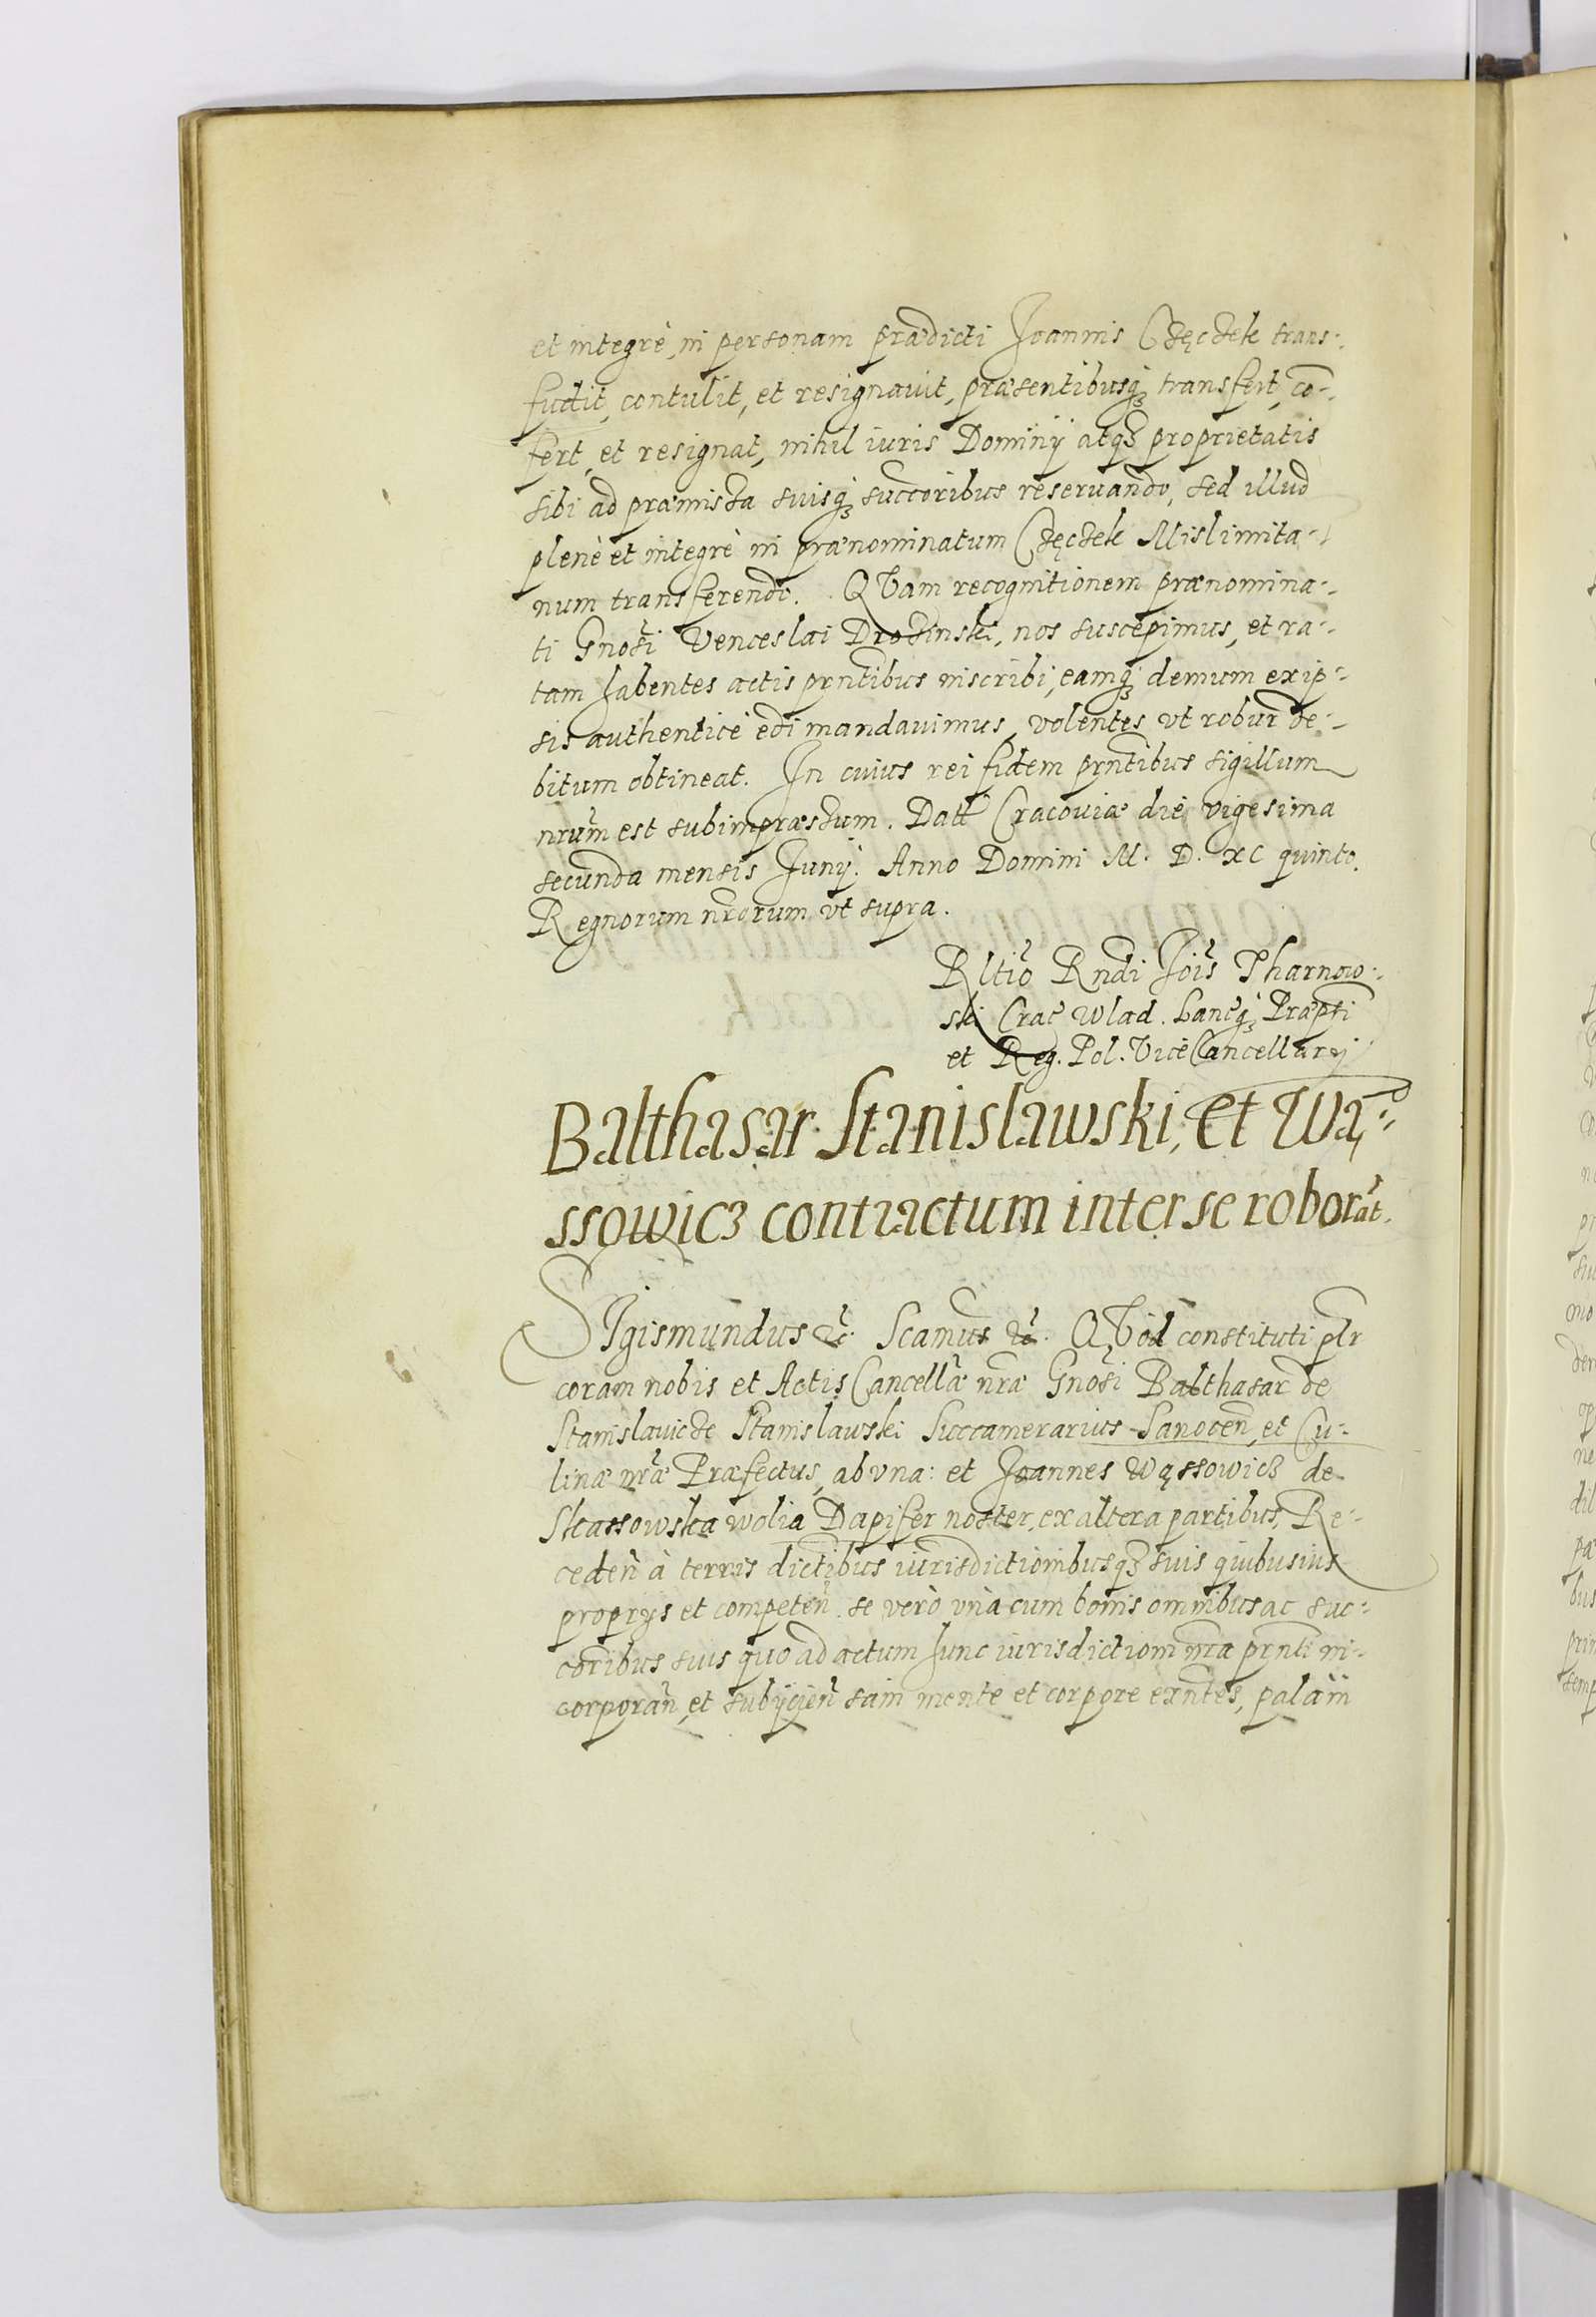 et integrè, in personam prædicti Joannis Częczek trans-
fudit, contulit, et resignauit, præsentibusq3 transfert, cō-
fert, et resignat, nihil iuris Dominij atq3 proprietatis
sibi ad præmissa suisq3 succoribus reseruando, sed illud
plenè et integrè in prænominatum Częczek Mislimita-
num transferendo. QVam recognitionem prænomina-
ti Gnosi Venceslai Drozinski, nos suscepimus, et ra-
tam habentes actis prntibus inscribi, eamq3 demum ex ip-
sis authenticè edi mandauimus, volentes vt robur de-
bitum obtineat. In cuius rei fidem prntibus sigillum
nrum est subimpræssum. Datt Cracouiæ die vigesima
secunda mensis Junij. Anno Domini M. D. XC quinto.
Regnorum nrorum vt supra.
Rltio Rndi Jois Tharnow-
ski Crac Wlad. Lancq3 Præpti
et Reg. Pol. ViceCancellarij
Balthasar Stanislawski, et Wą-
ssowic3 contractum inter se roborāt.
SIgismundus &c. Scamus &c. QVod constituti plr
coram nobis et Actis Cancellæ nræ Gnosi Balthasar de
Stanislauicze Stanislauski Succamerarius Sanocen, et Cu-
linæ nræ Præfectus, ab vna: et Joannes Wąssowic3 de
Skassowska wolia Dapifer noster, ex altera partibus, Re-
ceden à terris dictibus iurisdictionibusq3 suis quibusius
proprys et competen. se verò vnà cum bonis omnibus ac suc-
coribus suis quo ad actum hunc iurisdictioni nræ prnti in-
corporan, et subijcien sani mente et corpore exntes, palam